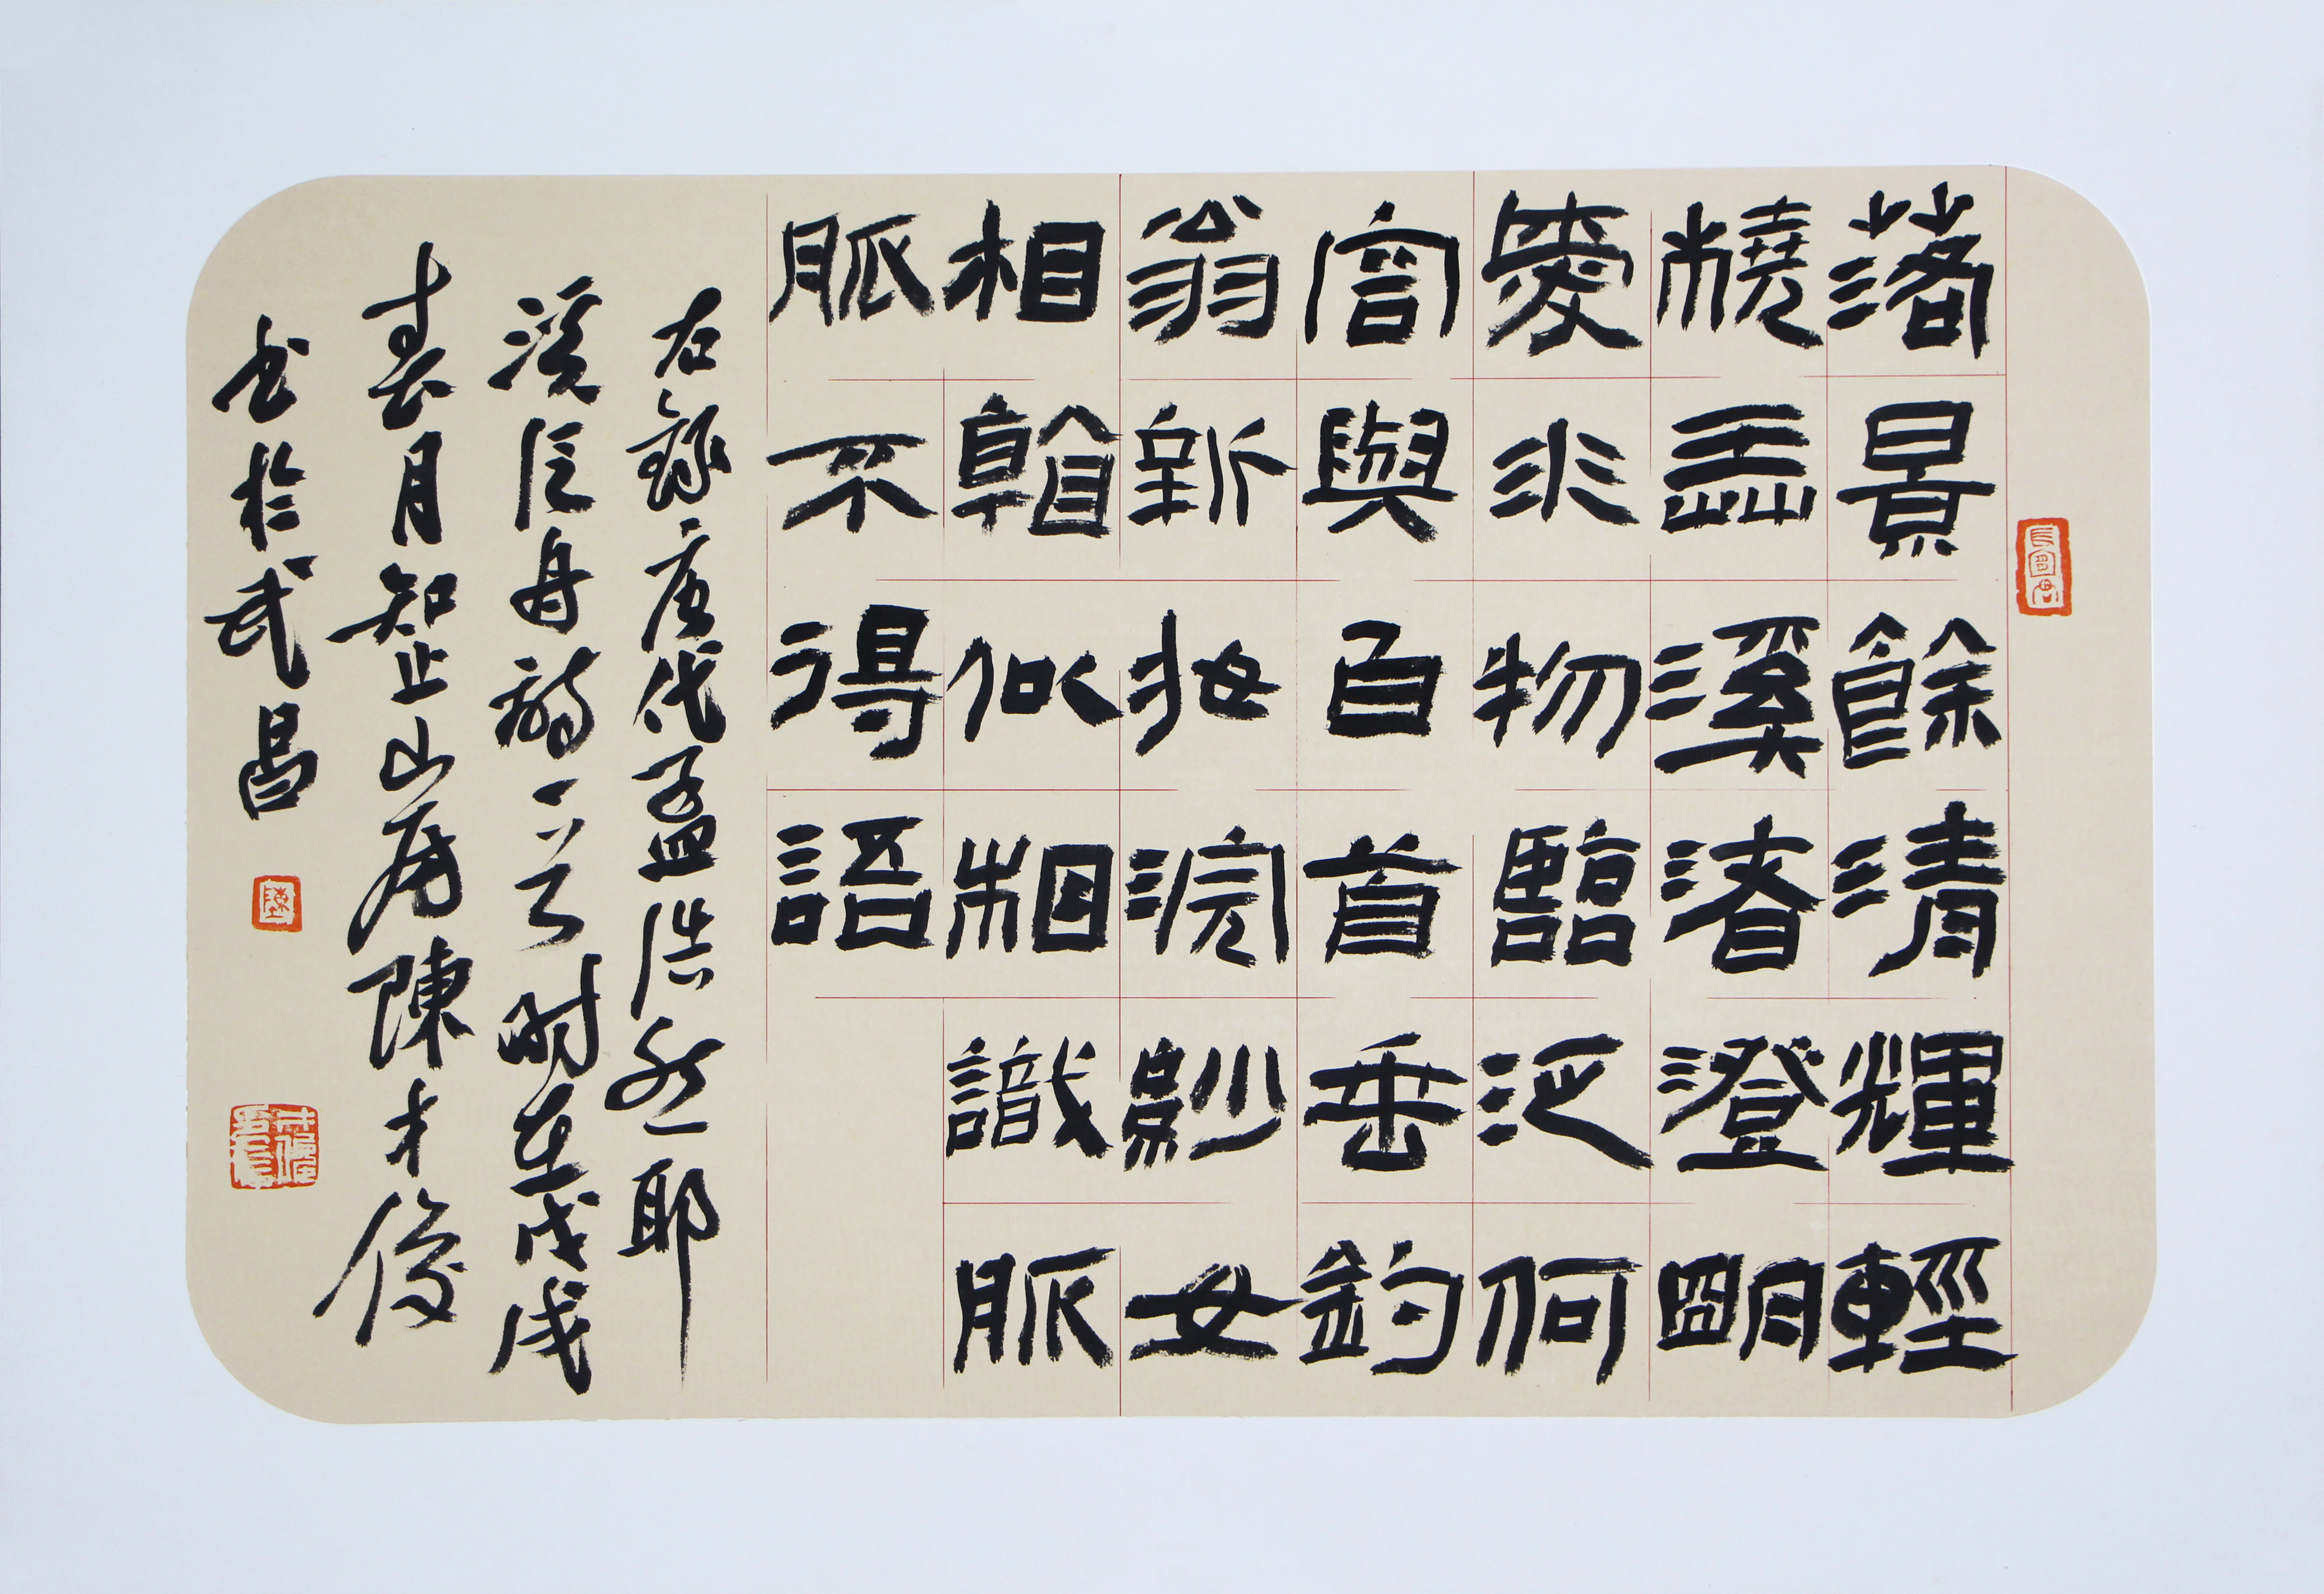 落景餘清輝輕
橈弄溪渚澄明
愛水物臨泛何
容與白首垂釣
翁新妝浣紗女
相看似相識脈
脈不得語
右錄唐代孟浩然耶
溪泛舟詩一首时在戊戌
春月知止山房陳才俊
书於武昌
陳